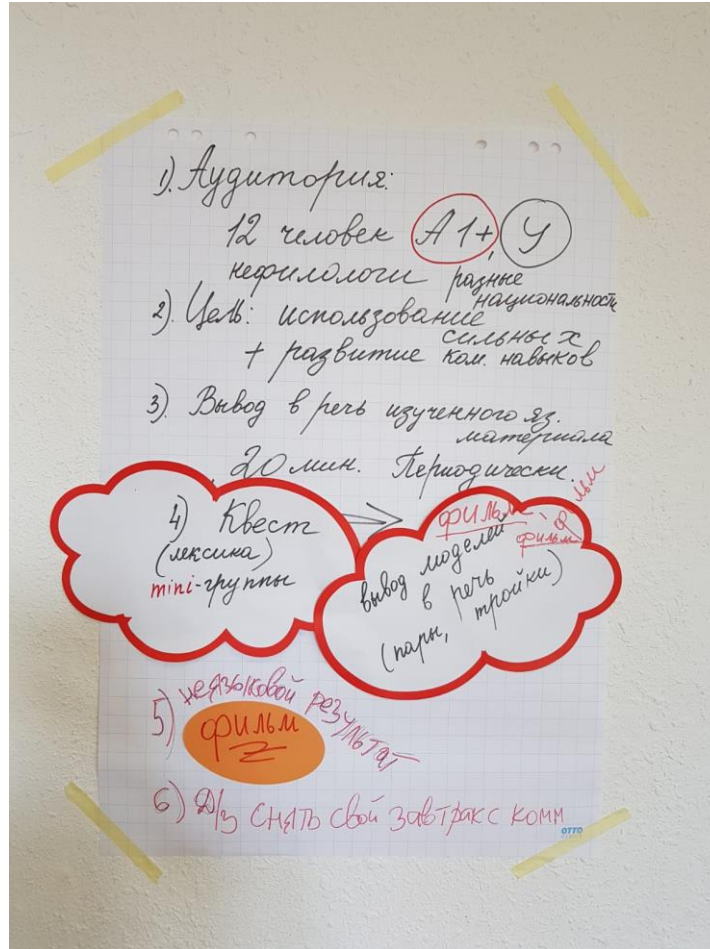 1). Аудитория:
12 человек А1+, У
нефилологи разные
национальности
2). Цель: использование
сильных
+ развитие ком. навыков
3). Вывод в речь изученного яз.
материала
20 мин. Периодически.
4) Квест
(лексика)
mini-группы
фильм, фильм
фильм
вывод моделей
в речь
(пары, тройки)
5) неязыковой результат
фильм
6) Д/з снять свой завтрак с комм
OTTO